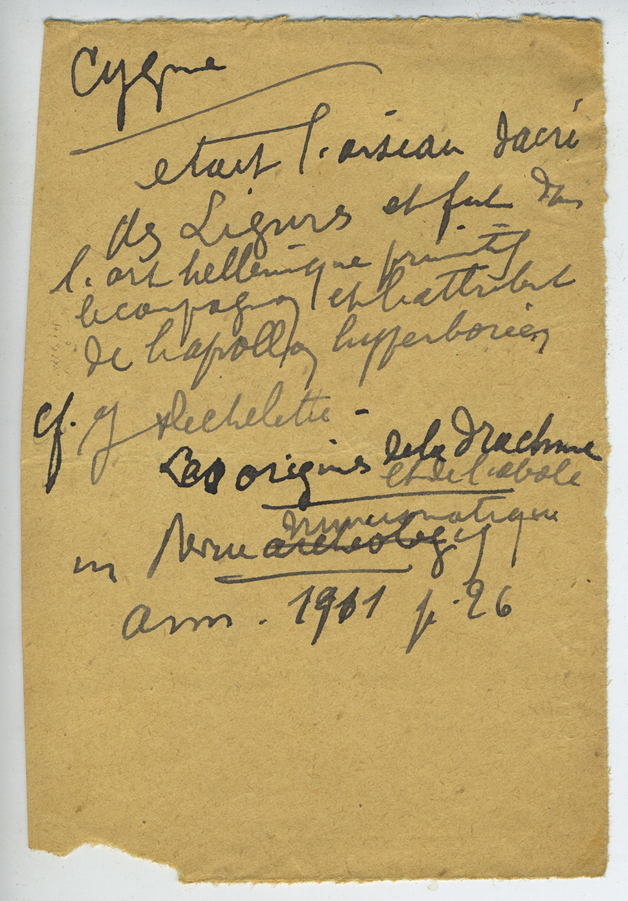 Cygne
etait l'oiseau sacré
des Ligures et fut dans
l'art hellenique primitif
le compagnon et l'attribut
de l'apollon hyperboréen
cf. J Dechelette -
Les origines de la drachme
et de l'obole
numismatique
in Revue archeologiq
ann. 1911 p. 26